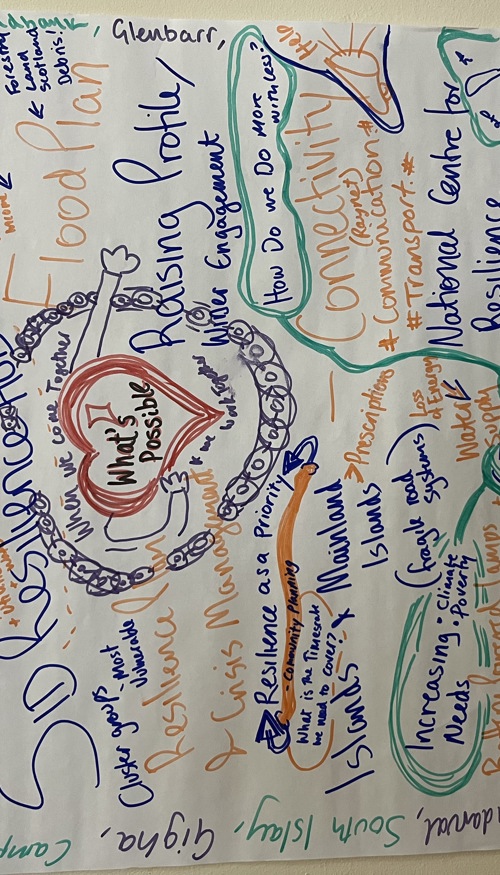 Glenbarr,
Forestry
Land
Scotland
Debris!
Flood Plan
Raising Profile/
Wider Engagement
How Do we Do More
with Less?
Help
Connectivity
(Raynet)
# Communication #
# Transport. #
National Centre for
Resilience
When we come Together
What's
Possible
& we work together
Resilience Plan
& Crisis Management
Cluster groups - most
Vulnerable
Resilience as a Priority
- Community Planning
What is the Timescale
we need to cover?
Islands & Mainland
Islands
> Prescriptions
(fragile road
systems)
Loss
of Energy
Water
Supply
Increasing
Needs
• Climate
• Poverty
Gigha,
South Islay,